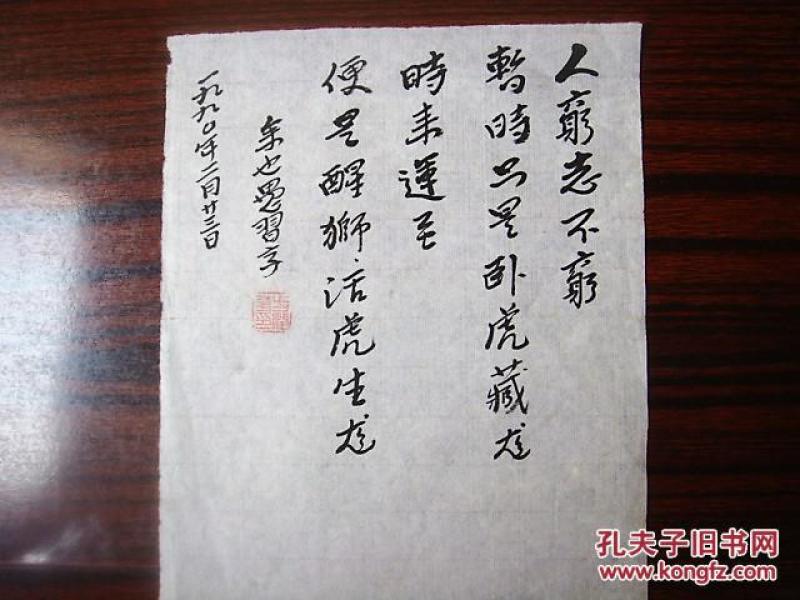 人窮志不窮
暫時只是卧虎藏龙
時来運至
便是醒獅、活虎生龙
余也愚習字
一九九〇年二月廿三日
孔夫子旧书网
www.kongfz.com